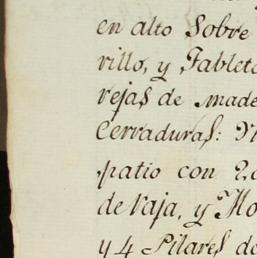 en alto Sobre
rillo, y Tablet
rejas de made
Cerraduras: Y
patio con
de vaja, y Mo
y 4 Pilares de